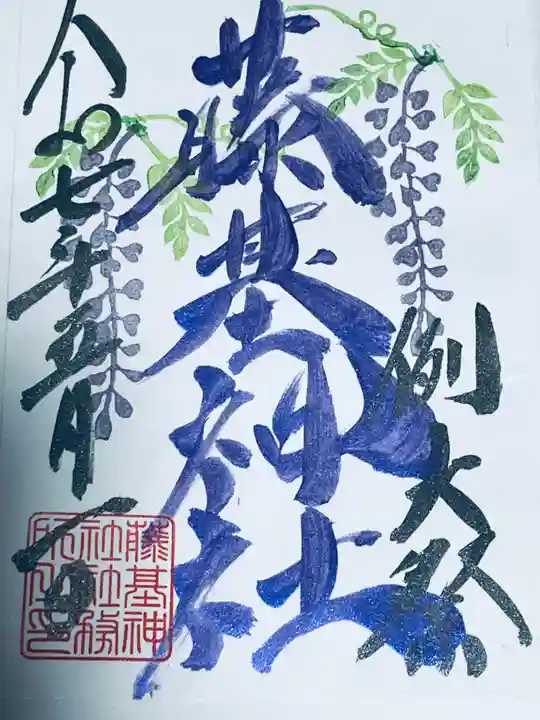 例大祭
藤基神社
令和七年五月一日
藤基神
社社務
所之印